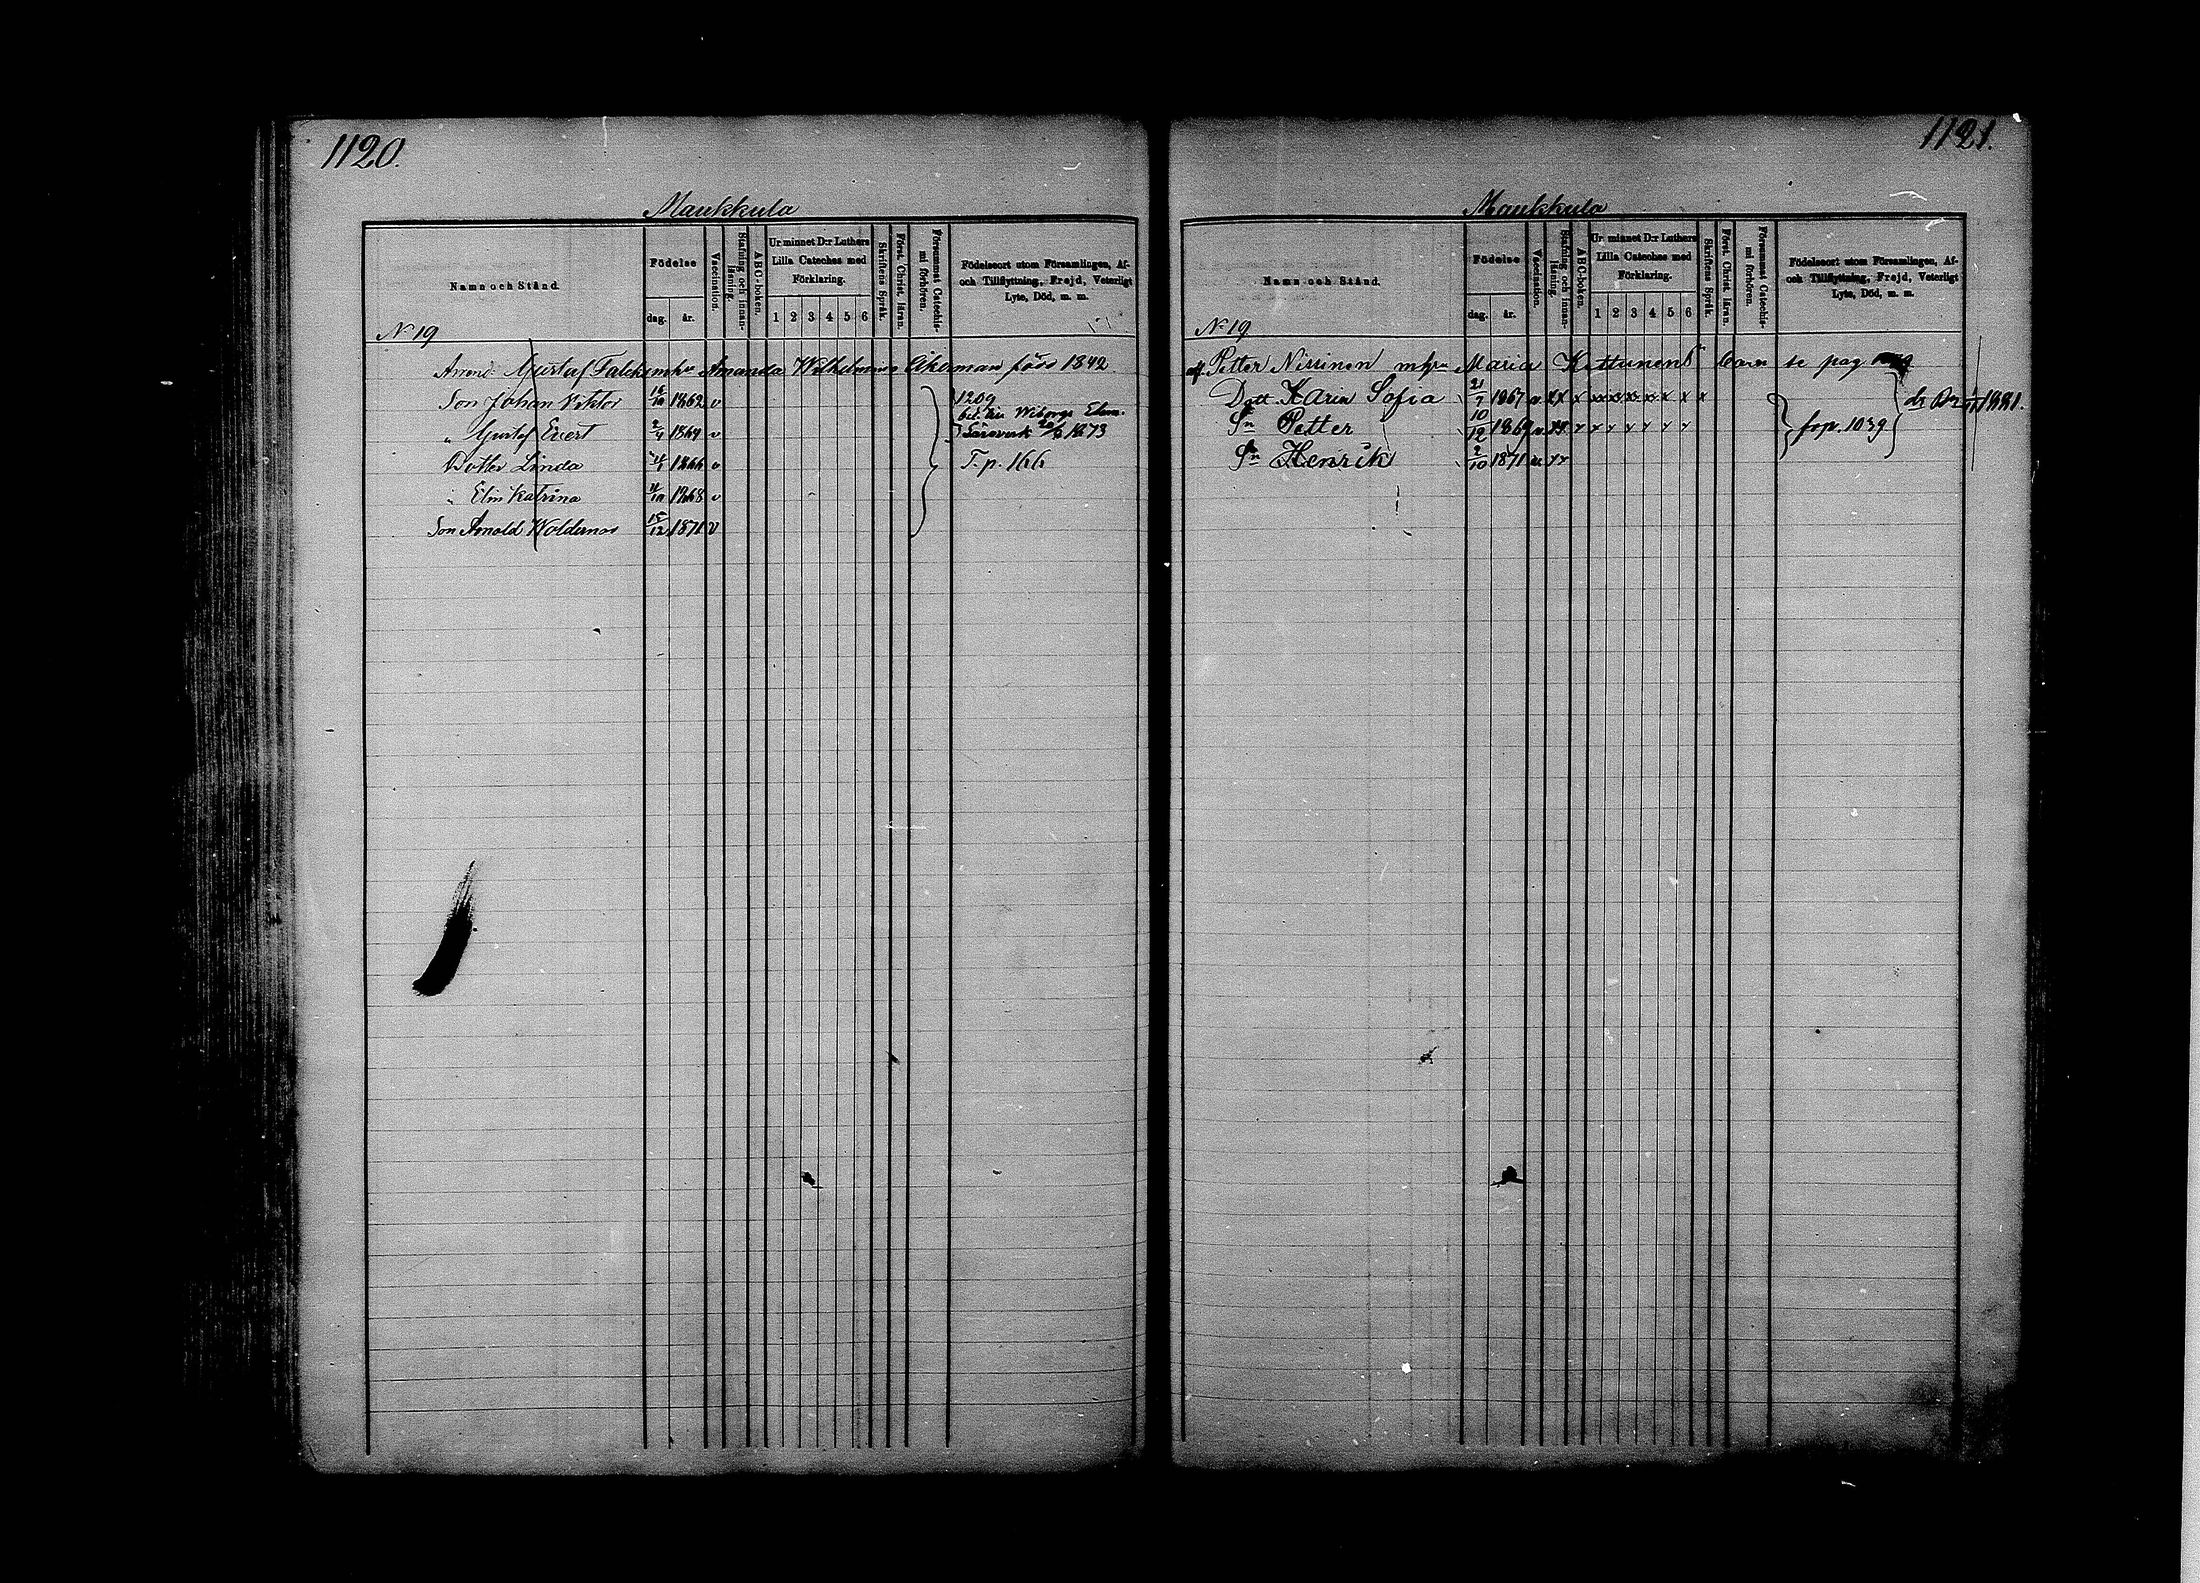 1120.
Maukkula
Namn och Stånd.
Födelse
dag. år.
Vaccination.
Stafning och innanläsning.
ABC-boken.
Ur minnet D:r Luthers Lilla Cateches med Förklaring.
1 2 3 4 5 6
Skriftens Språk.
Först. Christ. läran.
Försummat Catechismi förhören.
Födelseort utom Församlingen, Af- och Tillflyttning, Frejd, Veterligt Lyte, Död, m. m.
N 19
Arrend. Gustaf Falck Amanda Wilhelmina Åkerman född 1842
Son Johan Viktor 1862 v 1209
" Gustaf Evert 2/4 1864 v Wiborgs 1873
Dotter Linda 1866 v T. p. 166
" Elin Katrina 1868 v
Son Arnold Woldemar 15/12 1871 v
1121.
Maukkula
Namn och Stånd.
Födelse
dag. år.
Vaccination.
Stafning och innanläsning.
ABC-boken.
Ur minnet D:r Luthers Lilla Cateches med Förklaring.
1 2 3 4 5 6
Skriftens Språk.
Först. Christ. läran.
Försummat Catechismi förhören.
Födelseort utom Församlingen, Af- och Tillflyttning, Frejd, Veterligt Lyte, Död, m. m.
N 19
Petter Nissinen Maria Kettunens barn se pag
Dott. Karin Sofia 21/7 1867 1881.
Sn Petter 10/12 1869 1039
Sn Henrik 2/10 1871